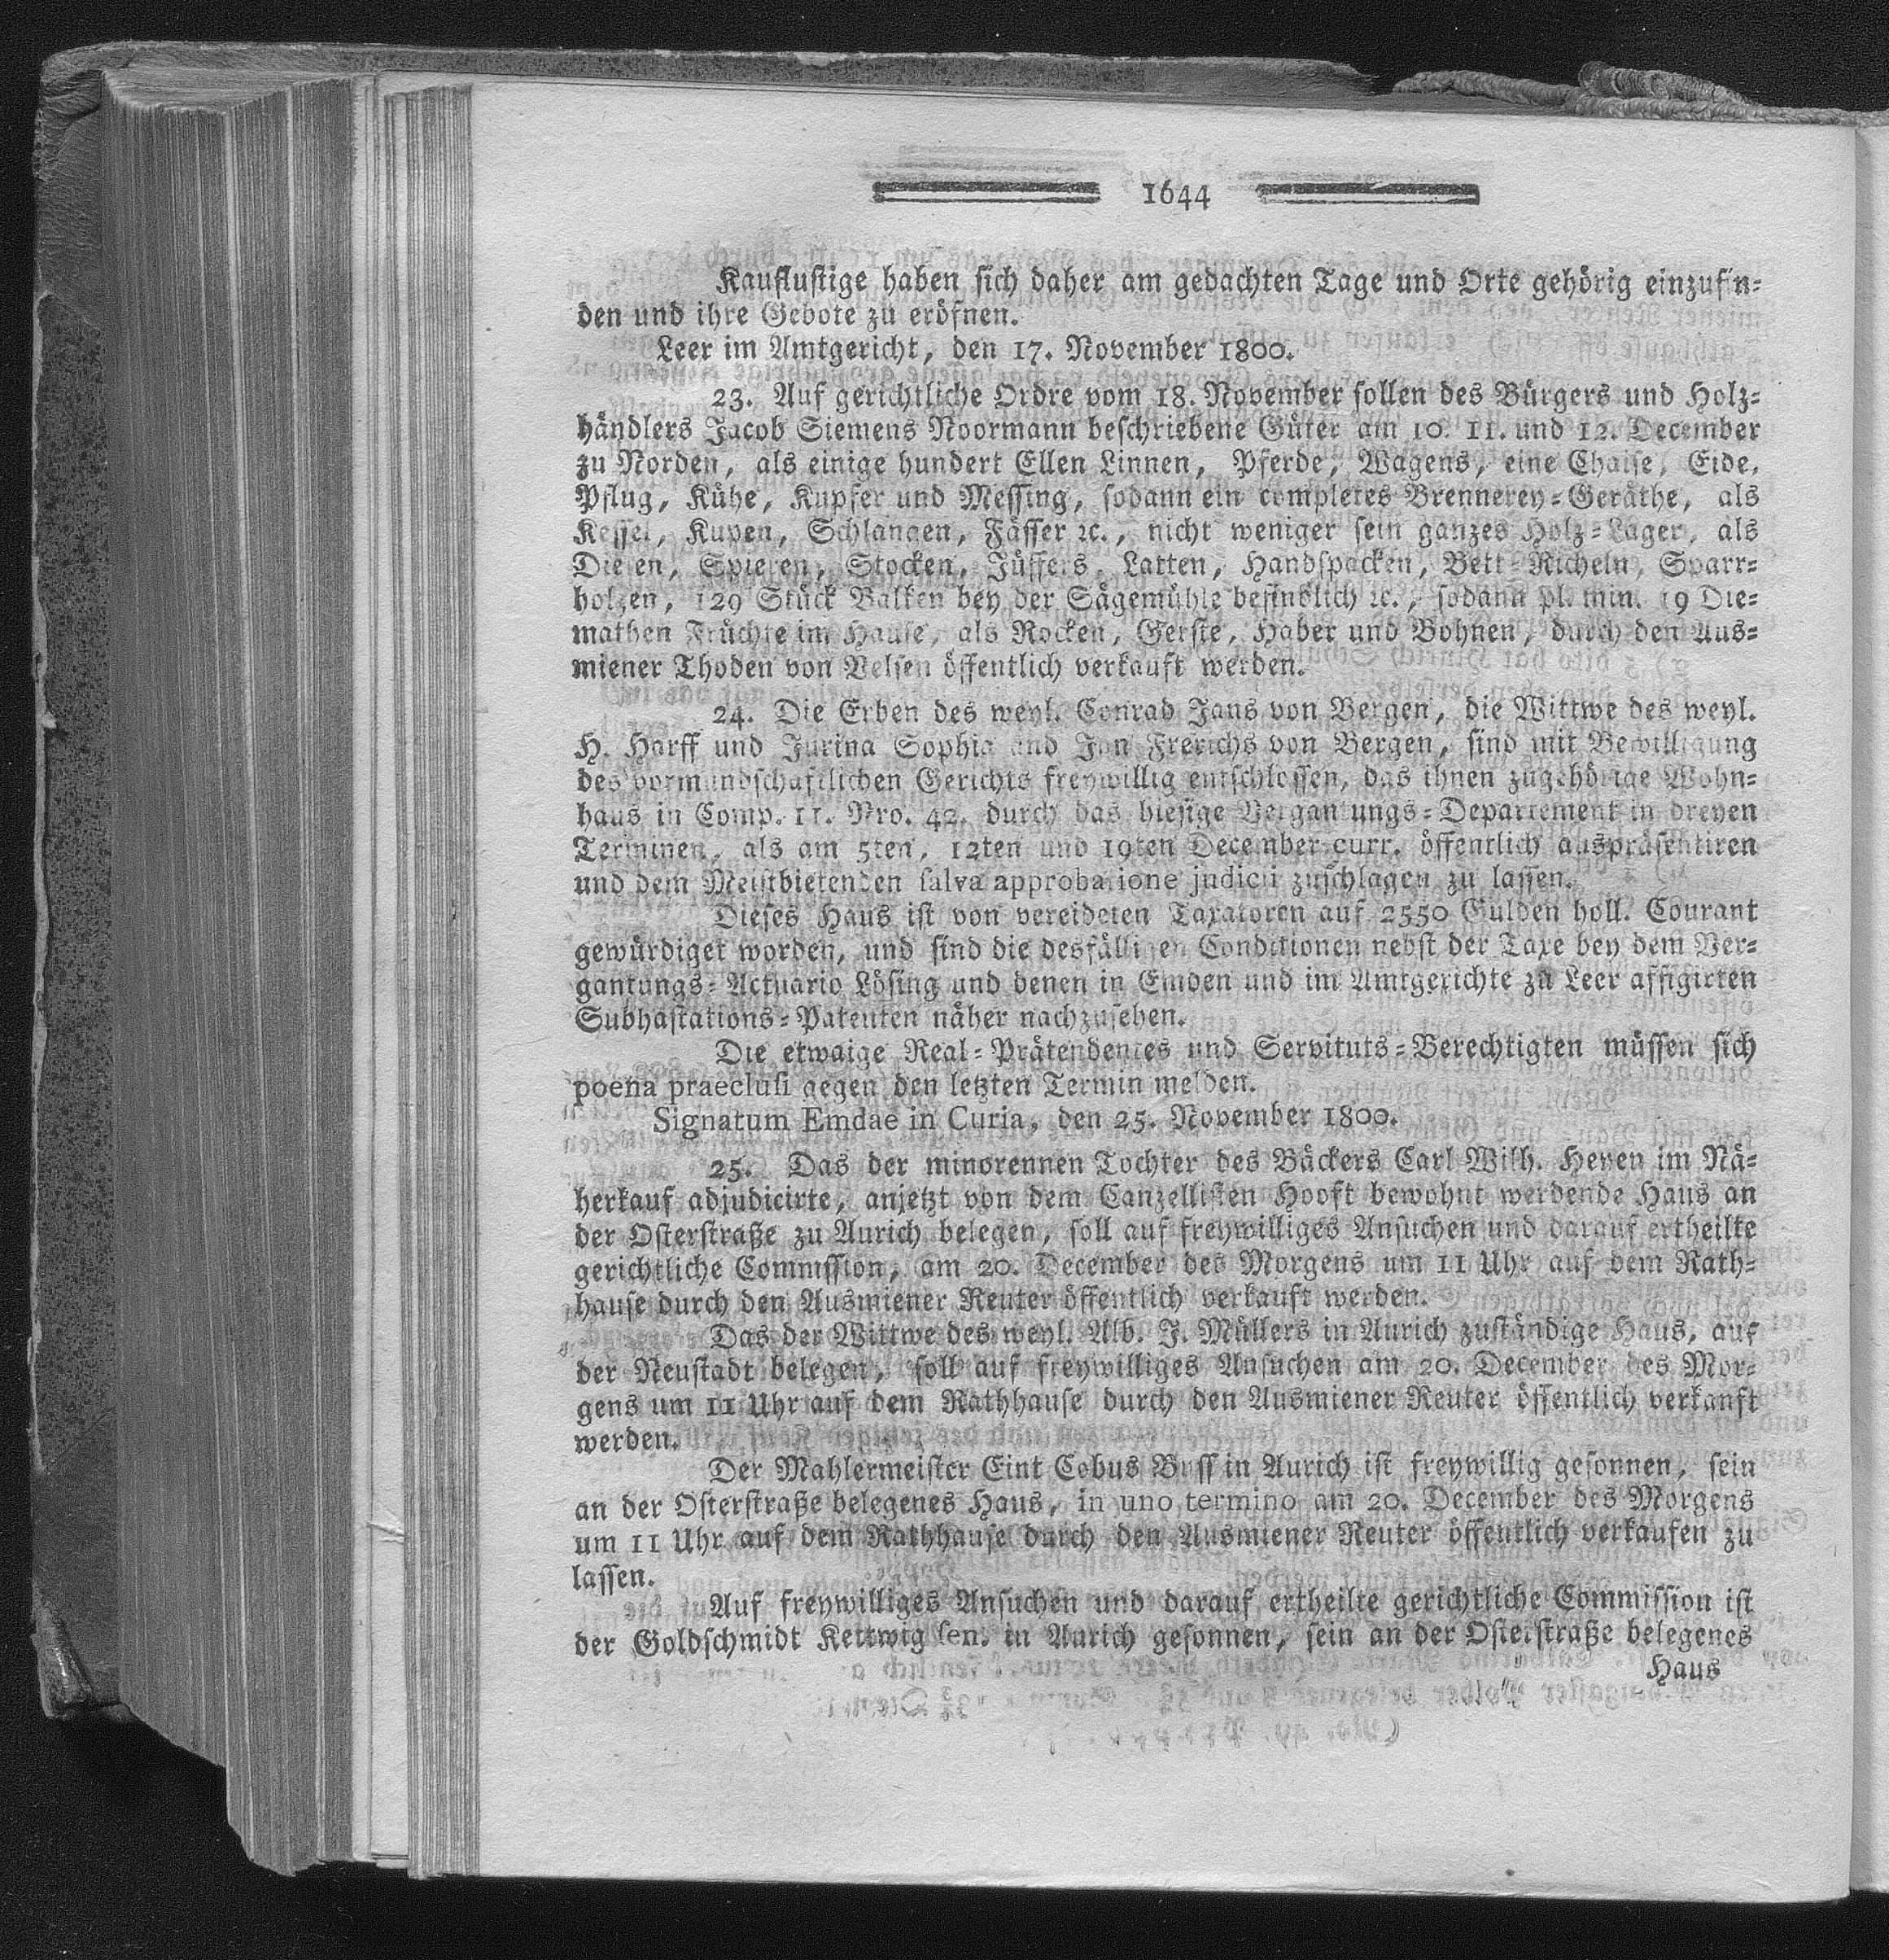 1644
Kauflustige haben sich daher am gedachten Tage und Orte gehörig einzufin-
den und ihre Gebote zu eröfnen.
Leer im Amtgericht, den 17. November 1800.
23. Auf gerichtliche Ordre vom 18. November sollen des Bürgers und Holz-
händlers Jacob Siemens Noormann beschriebene Güter am 10. 11. und 12. December
zu Norden, als einige hundert Ellen Linnen, Pferde, Wagens, eine Chaise, Eide,
Pflug, Kühe, Kupfer und Messing, sodann ein completes Brennerey-Geräthe, als
Kessel, Kupen, Schlangen, Fässer ꝛc., nicht weniger sein ganzes Holz-Lager, als
Dielen, Spieren, Stocken, Jüffers, Latten, Handspacken, Bett-Richeln, Sparr-
holzen, 129 Stück Balken bey der Sägemühle befindlich ꝛc., sodann pl. min. 19 Die-
mathen Früchte im Hause, als Rocken, Gerste, Haber und Bohnen, durch den Aus-
miener Thoden von Velsen öffentlich verkauft werden.
24. Die Erben des weyl. Conrad Jans von Bergen, die Wittwe des weyl.
H. Harff und Jurina Sophia und Jan Frerichs von Bergen, sind mit Bewilligung
des vormundschaftlichen Gerichts freywillig entschlossen, das ihnen zugehörige Wohn-
haus in Comp. 11. Nro. 42. durch das hiesige Vergantungs-Departement in dreyen
Terminen, als am 5ten, 12ten und 19ten December curr. öffentlich auspräsentiren
und dem Meistbietenden salva approbatione judicii zuschlagen zu lassen.
Dieses Haus ist von vereideten Taxatoren auf 2550 Gulden holl. Courant
gewürdiget worden, und sind die desfälligen Conditionen nebst der Taxe bey dem Ver-
gantungs-Actuario Lösing und denen in Emden und im Amtgerichte zu Leer affigirten
Subhastations-Patenten näher nachzusehen.
Die etwaige Real-Prätendentes und Servituts-Berechtigten müssen sich
poena praeclusi gegen den letzten Termin melden.
Signatum Emdae in Curia, den 25. November 1800.
25. Das der minorennen Tochter des Bäckers Carl Wilh. Heyen im Nä-
herkauf adjudicirte, anjetzt von dem Canzellisten Hooft bewohnt werdende Haus an
der Osterstraße zu Aurich belegen, soll auf freywilliges Ansuchen und darauf ertheilte
gerichtliche Commission, am 20. December des Morgens um 11 Uhr auf dem Rath-
hause durch den Ausmiener Reuter öffentlich verkauft werden.
Das der Wittwe des weyl. Alb. J. Müllers in Aurich zuständige Haus, auf
der Neustadt belegen, soll auf freywilliges Ansuchen am 20. December des Mor-
gens um 11 Uhr auf dem Rathhause durch den Ausmiener Reuter öffentlich verkauft
werden.
Der Mahlermeister Eint Cobus Buss in Aurich ist freywillig gesonnen, sein
an der Osterstraße belegenes Haus, in uno termino am 20. December des Morgens
um 11 Uhr auf dem Rathhause durch den Ausmiener Reuter öffentlich verkaufen zu
lassen.
Auf freywilliges Ansuchen und darauf ertheilte gerichtliche Commission ist
der Goldschmidt Kettwig sen. in Aurich gesonnen, sein an der Osterstraße belegenes
Haus